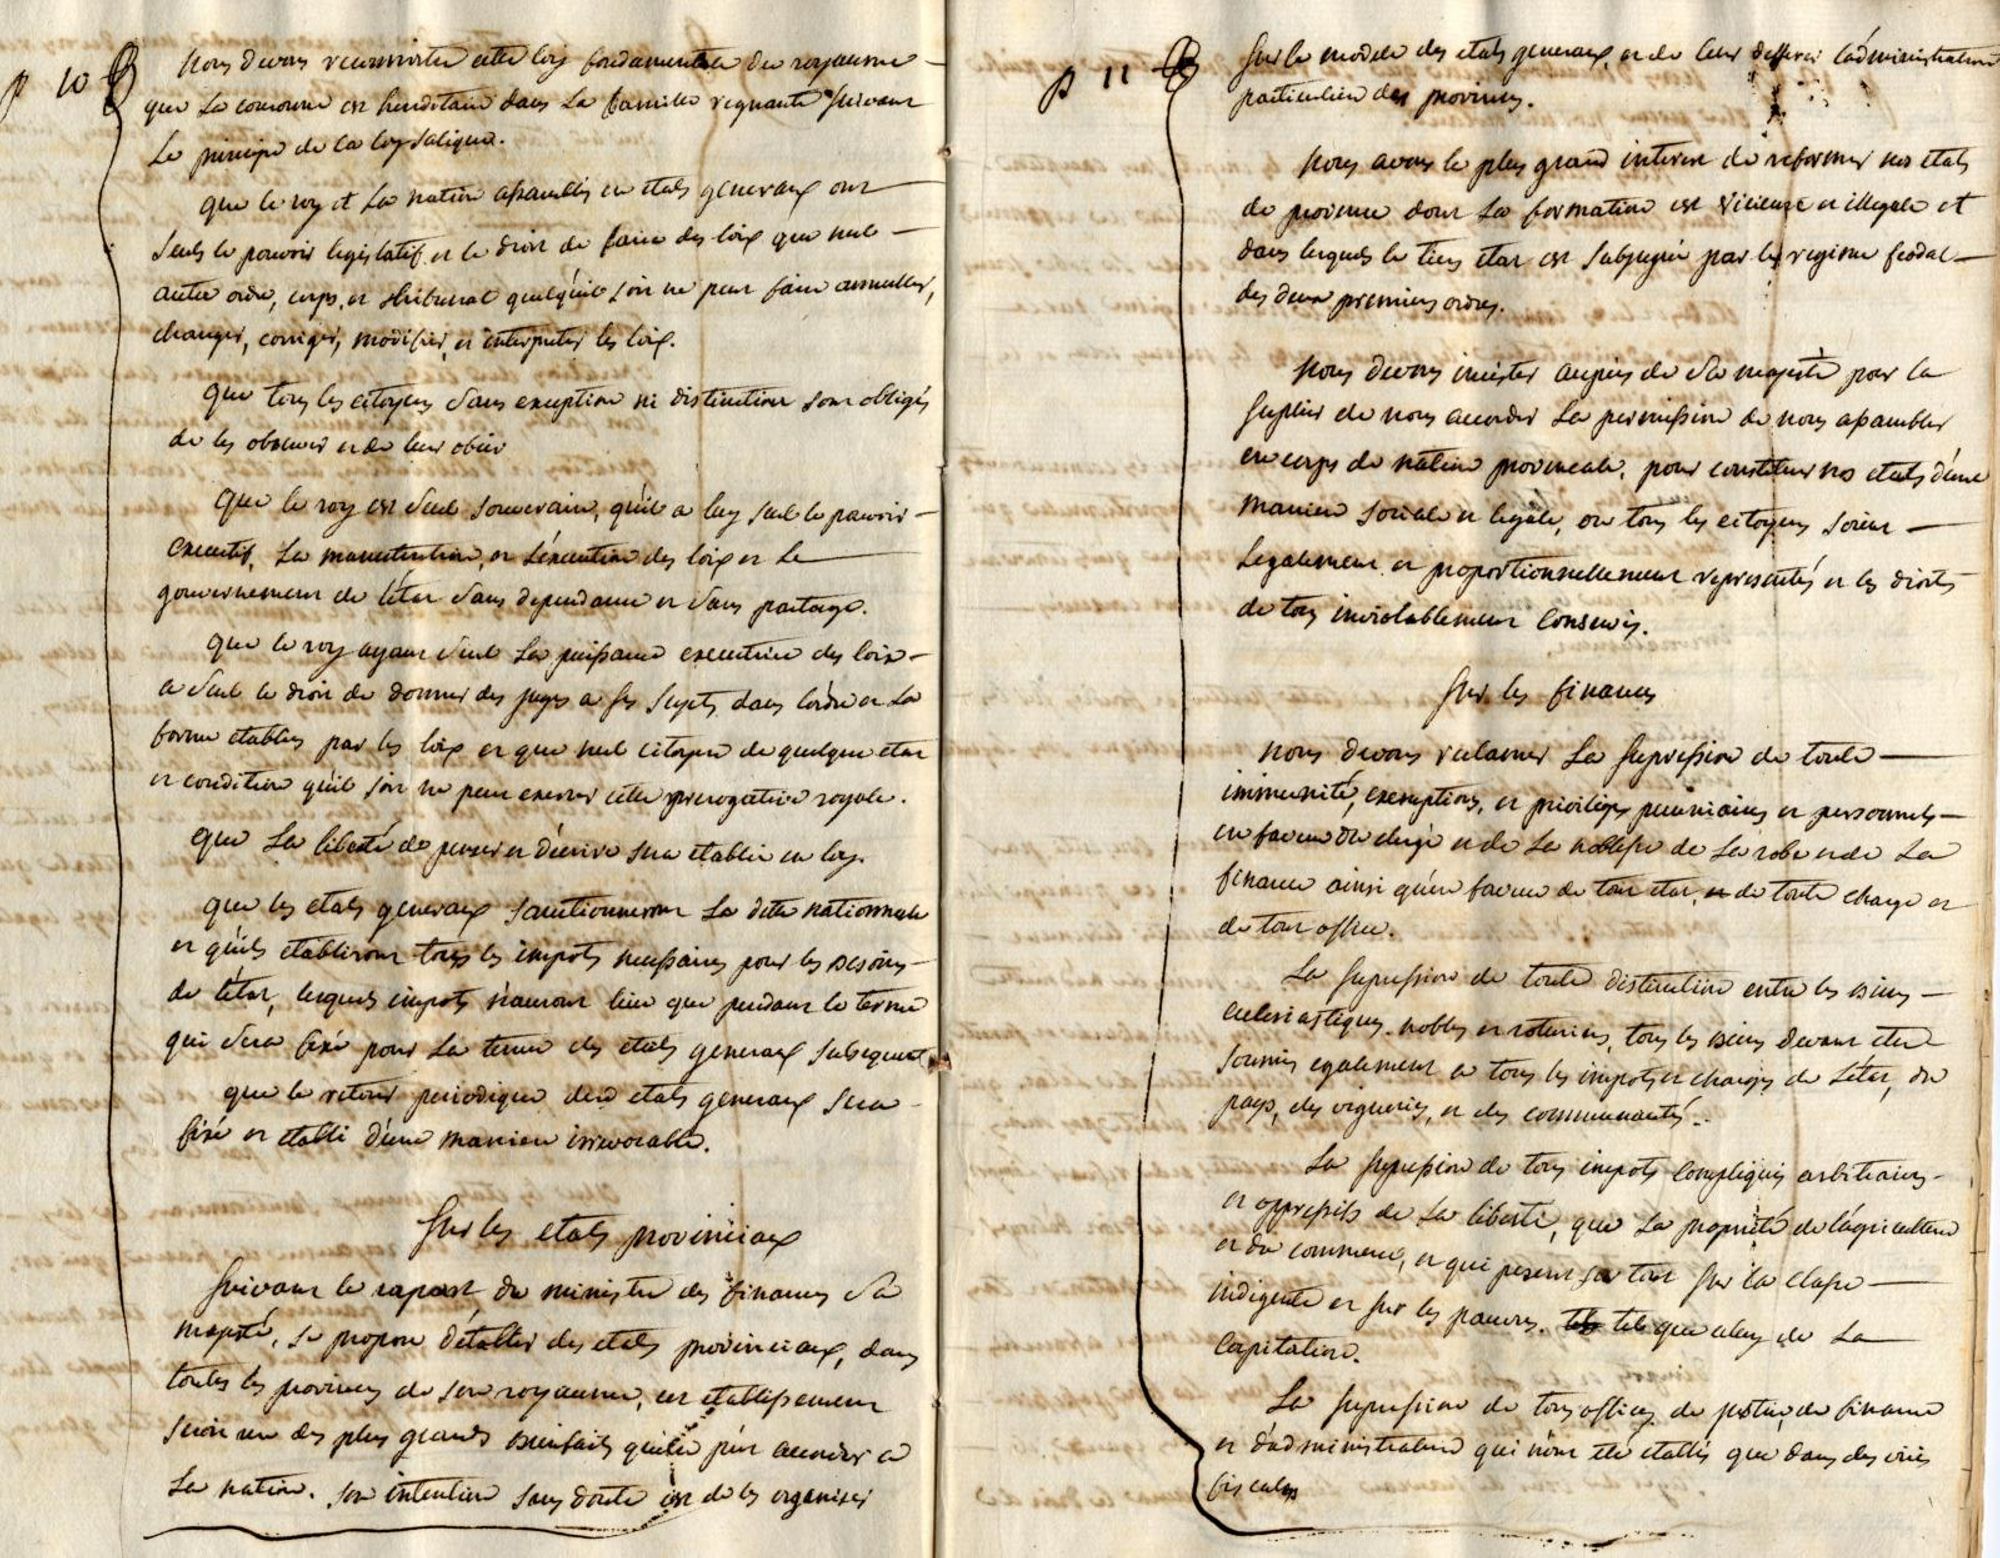 p 10
Nous devons reconnoitre cette loy fondamentale du royaume
que la couronne est hereditaire dans la famille regnante suivant
le principe de la loy salique.
que le roy et la nation assemblés en etats generaux ont
seuls le pouvoir legislatif et le droit de faire des loix que nul
autre ordre, corps, et tribunal quelqu'il soit ne peut faire annuller,
changer, corriger, modifier, et interpreter les loix.
que tous les citoyens sans exception ni distinction sont obligés
de les observer et de leur obéir
que le roy est seul souverain, qu'il a luy seul le pouvoir
executif, la manutention, et l'éxecution des loix et le
gouvernement de l'état sans dependance et sans partage.
que le roy ayant seul la puissance executrice des loix
a seul le droit de donner des juges a ses sujets dans l'ordre et la
forme etablies par les loix et que nul citoyen de quelque etat
et condition qu'il soit ne peut exercer cette prerogative royale.
que la liberté de penser et d'écrire sera etablie en loy.
que les etats generaux sanctionneront la dette nationnale
et qu'ils etabliront tous les impots necessaires pour les besoins
de l'état, lesquels impots n'auront lieu que pendant le terme
qui sera fixé pour la tenue des etats generaux subsequent
que le retour periodique des etats generaux sera
fixé et etabli d'une maniere irrevocable.
Sur les etats provinciaux
Suivant le raport du ministre des finances sa
majesté, se propose d'établir des etats provinciaux, dans
toutes les provinces de son royaume, cet etablissement
seroit un des plus grands bienfaits qu'elle put accorder a
la nation. son intention sans doute est de les organiser
p 11
sur le modele des etats generaux, et de leur deferer l'administration
particuliere des provinces.
Nous avons le plus grand interest de reformer nos etats
de provence dont la formation est vicieuse et illegale et
dans lesquels le tiers etat est subjugué par le regime feodal
des deux premiers ordres.
Nous devons insister aupres de sa majesté pour la
suplier de nous accorder la permission de nous assembler
en corps de nation provencale, pour constituer nos etats d'une
maniere sociale et legale, ou tous les citoyens soient
legalement et proportionnellement representés et les droits
de tous inviolablement conservés.
Sur les finances
Nous devons reclamer la supression de toute
immunité, exemptions, et privileges pecuniaires et personnels
en faveur du clergé et de la noblesse de la robe et de la
finance ainsi qu'en faveur de tout etat, et de toute charge et
de tout office.
La supression de toute distinction entre les biens
eclesiastiques, nobles et roturiers, tous les biens devant etre
soumis egalement a tous les impots et charges de l'état, du
pays, des vigueries, et des communautés.
La supression de tous impots compliqués arbitraires
et oppressifs de la liberté, que la proprieté de l'agriculture
et du commerce, et qui pesent sur tout sur la classe
indigente et sur les pauvres. tels que celuy de la
capitation.
La supression de tous offices de justice, de finance
et d'administration qui n'ont eté etablis que dans des vües
fiscales